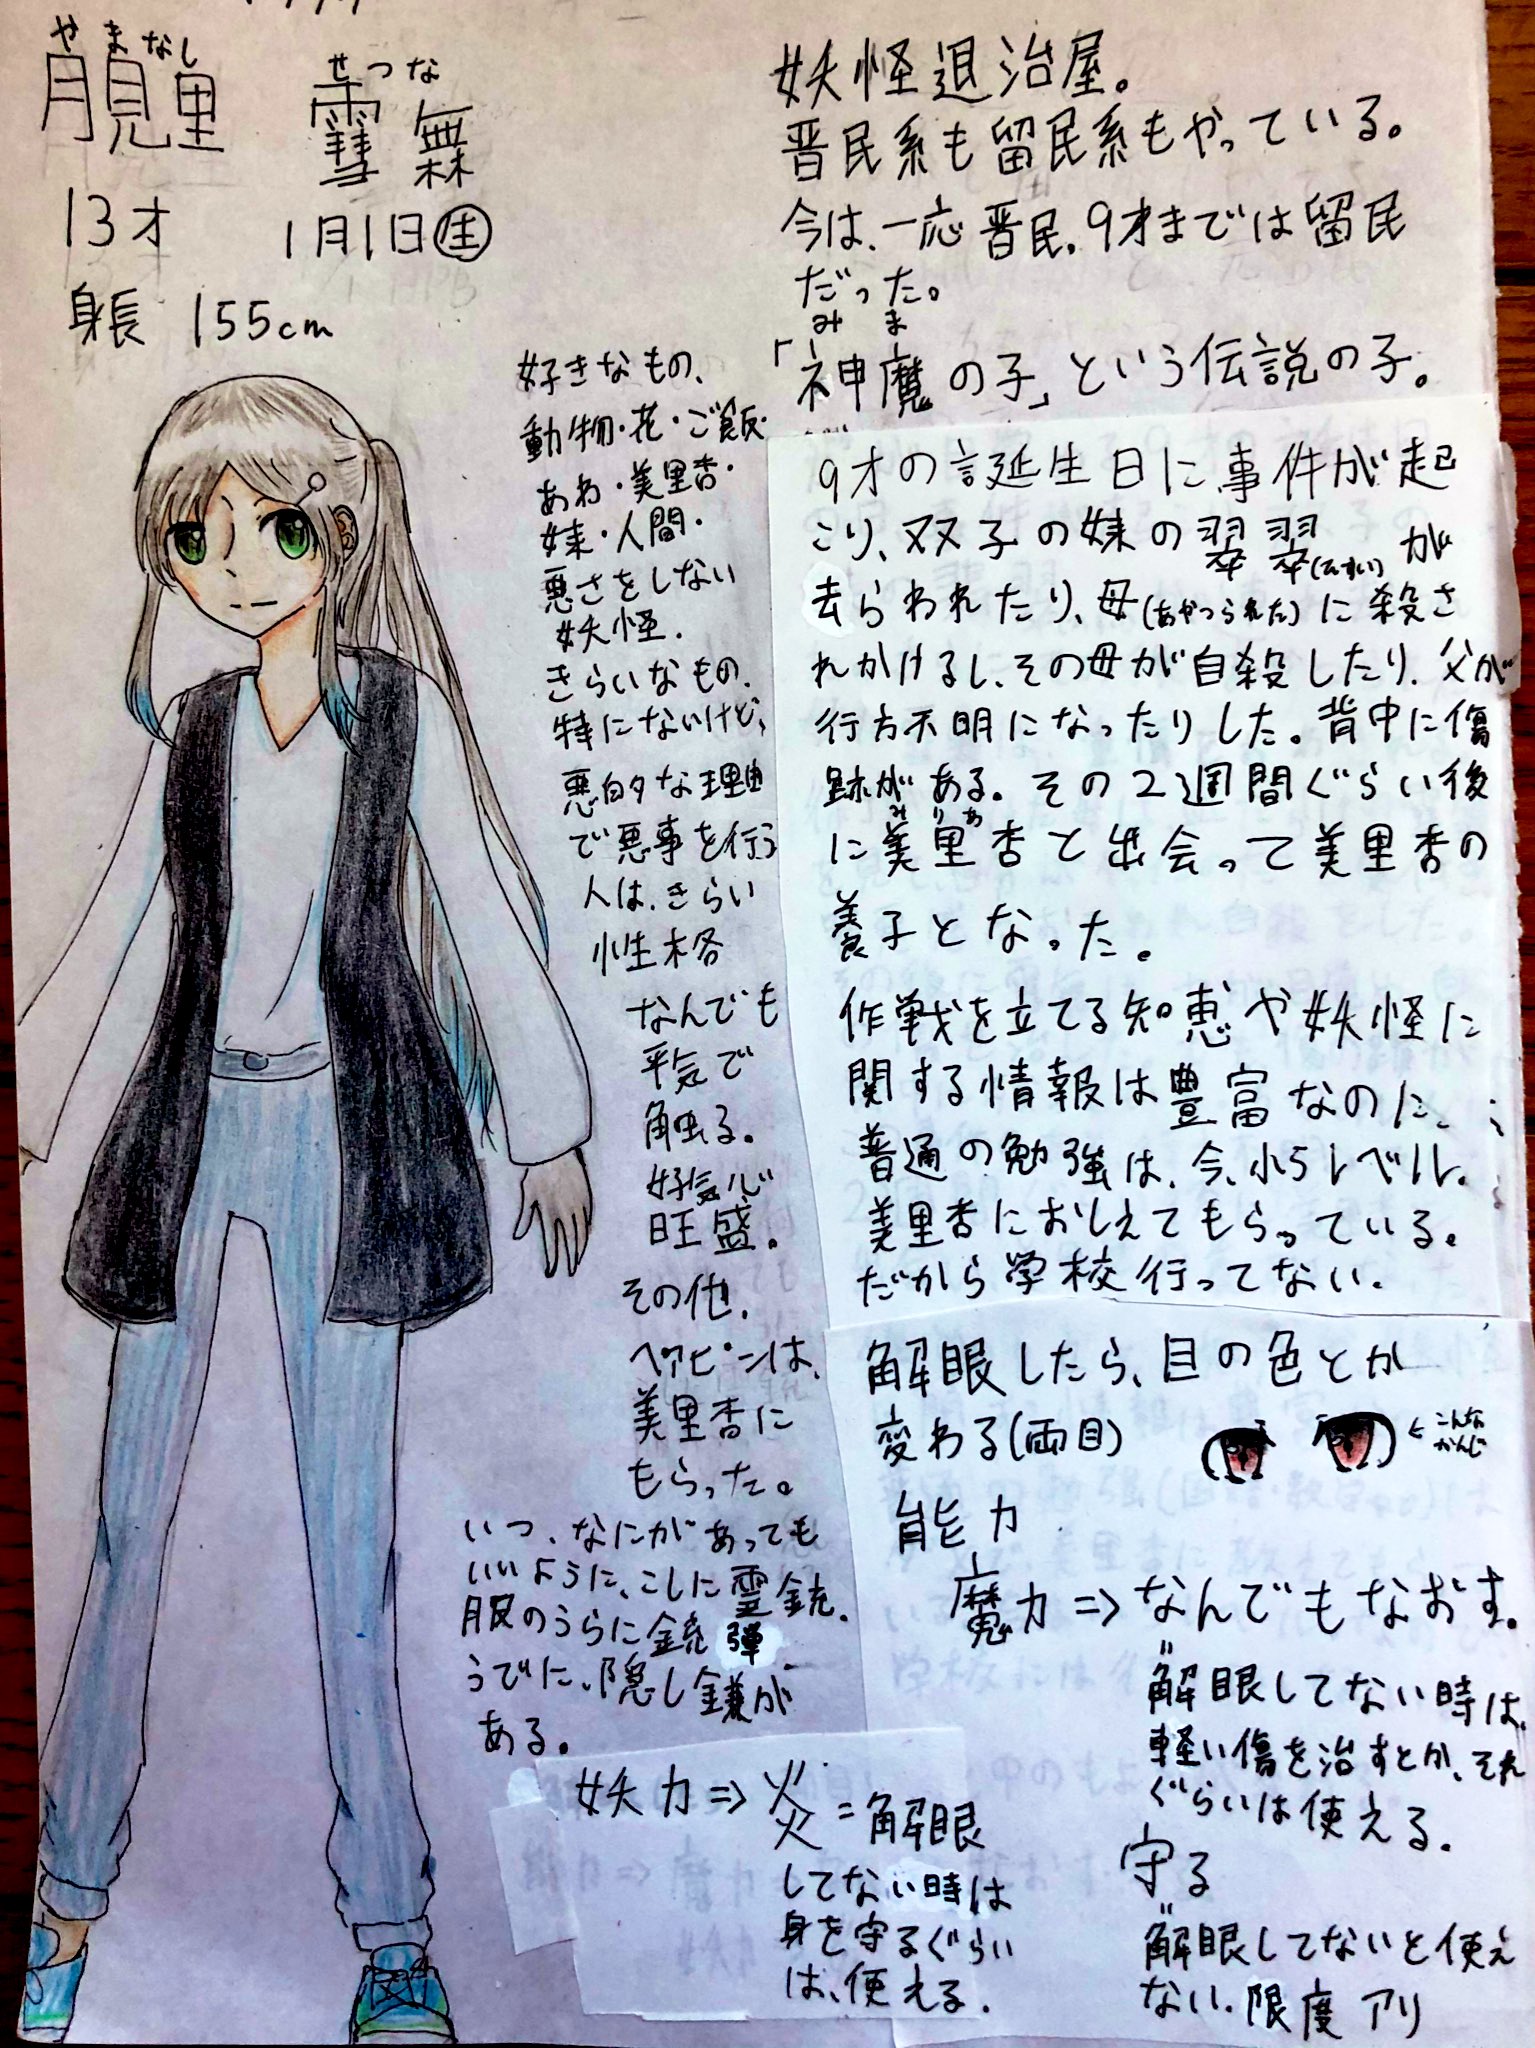 やまなし
月見里
せつな
13才
1月1日生
身長 155cm
妖怪退治屋。
晋民系も留民系もやっている。
今は、一応晋民。9才までは留民
だった。
みま
「神魔の子」という伝説の子。
好きなもの、
動物・花・ご飯・
あね・美里杏・
妹・人間・
悪さをしない
妖怪.
きらいなもの、
特にないけど、
悪的な理由
で悪事を行う
人は、きらい
性格
なんでも
平気で
触る。
好気心
旺盛。
その他.
ヘアピンは、
美里杏に
もらった。
いつ、なにがあっても
いいように、こしに霊銃.
服のうらに銃弾.
うでに、隠し鎌が
ある。
9才の誕生日に事件が起
こり、双子の妹の翠翠が
去らわれたり、母(あやつられた)に殺さ
れかけるし、その母が自殺したり、父が
行方不明になったりした。背中に傷
跡がある。その2週間ぐらい後
みりあ
に美里杏と出会って美里杏の
養子となった。
作戦を立てる知恵や妖怪に
関する情報は豊富なのに、
普通の勉強は、今、小5レベル。
美里杏におしえてもらっている。
だから学校行ってない.
解眼したら、目の色とか
変わる(両目)
←こんな
かんじ
能力
魔力⇒なんでもなおす。
"解眼してない時は、
軽い傷を治すとか、それ
ぐらいは使える.
守る
"解眼してないと使え
ない. 限度アリ
妖力⇒炎=解眼
してない時は
身を守るぐらい
は、使える.